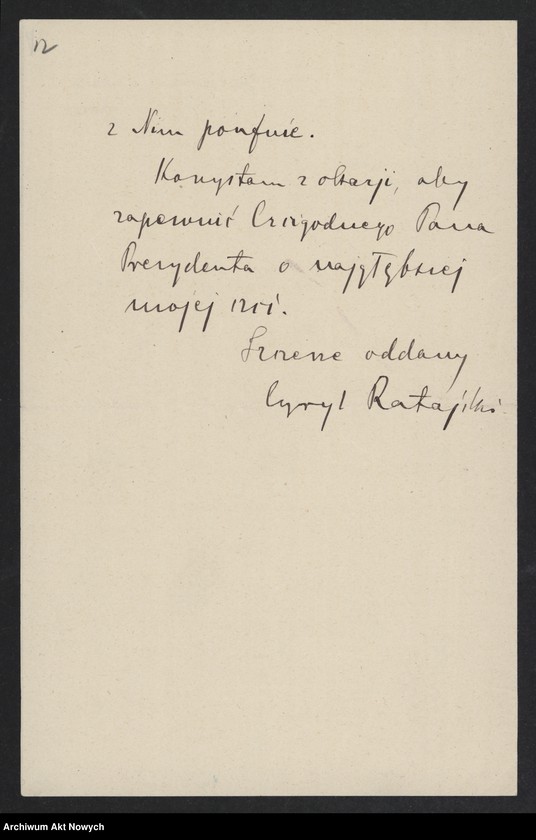 12
z Nim poufnie.
Korzystam z okazji, aby
zapewnić Czcigodnego Pana
Prezydenta o najgłębszej
mojej czci.
Szczerze oddany
Cyryl Ratajski
Archiwum Akt Nowych